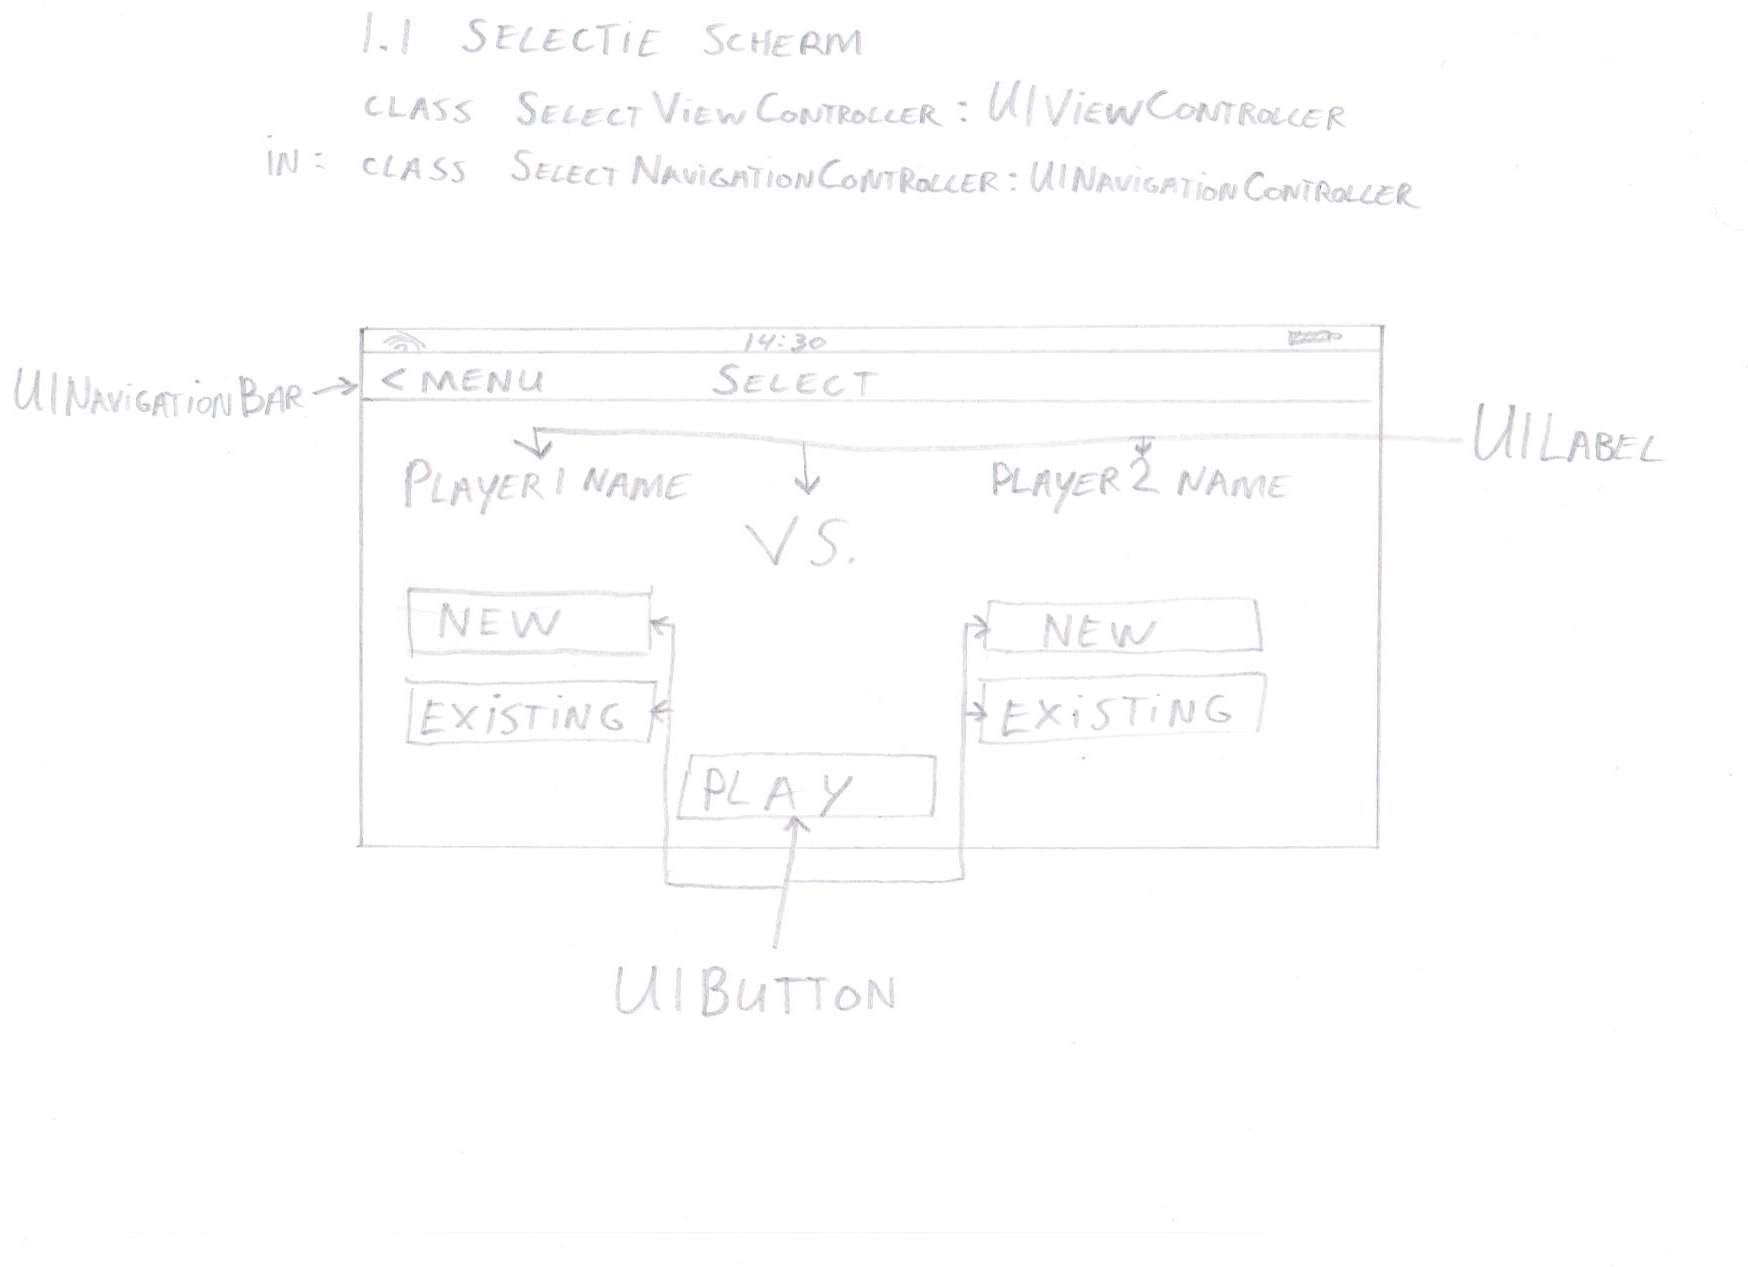 1.1 SELECTIE SCHERM
CLASS SELECTVIEWCONTROLLER: UIVIEWCONTROLLER
IN: CLASS SELECTNAVIGATIONCONTROLLER: UINAVIGATIONCONTROLLER
14:30
UINAVIGATIONBAR < MENU SELECT
UILABEL
PLAYER 1 NAME PLAYER 2 NAME
VS.
NEW NEW
EXISTING EXISTING
PLAY
UIBUTTON